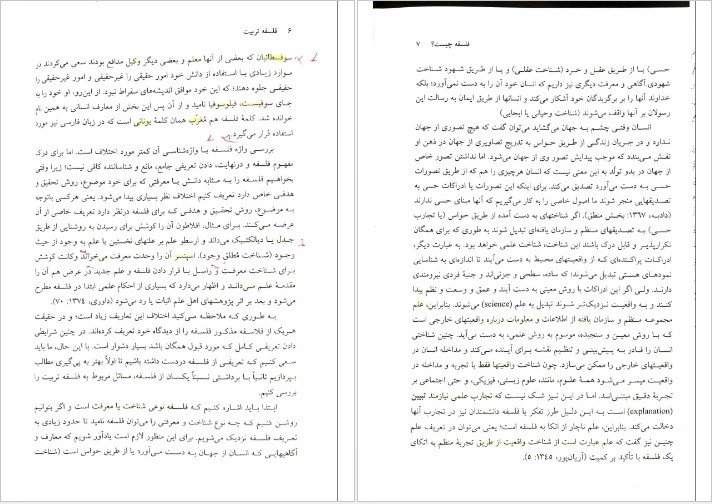 ۶ فلسفه تربیت
سوفسطائیان که بعضی از آنها معلم و بعضی دیگر وکیل مدافع بودند سعی می‌کردند در
موارد زیادی با استفاده از دانش خود امور حقیقی را غیرحقیقی و امور غیرحقیقی را
حقیقی جلوه دهند؛ که این خود موافق اندیشه‌های سقراط نبود. از این‌رو، او خود را به
جای سوفیست، فیلوسوفیا نامید و از آن پس این بخش از معارف انسانی به همین نام
خوانده شد. کلمهٔ فلسفه هم مُعَرّب همان کلمهٔ یونانی است که در زبان فارسی نیز مورد
استفاده قرار می‌گیرد.
بررسی واژه فلسفه با واژه‌شناسی آن کمتر مورد اختلاف است. اما برای درک
مفهوم فلسفه و درنهایت، دادن تعریفی جامع، مانع و شناساننده کافی نیست؛ زیرا وقتی
بخواهیم فلسفه را به مثابه دانش یا معرفتی که برای خود موضوع، روش تحقیق و
هدفی خاص دارد تعریف کنیم اختلاف نظر بسیاری پیدا می‌شود. یعنی هرکسی باتوجه
به موضوع، روش تحقیق و هدفی که برای فلسفه درنظر دارد تعریف خاصی از آن
عرضه می‌کند. برای مثال، افلاطون آن را کوشش برای رسیدن به روشنایی از طریق
جدل یا دیالکتیک می‌داند و ارسطو علم بر علتهای نخستین یا علم به وجود از حیث
وجود (شناخت مُطلق وجود). اسپنسر آن را وحدت معرفت می‌خواند و کانت کوشش
برای شناخت معرفت و راسل با قرار دادن فلسفه و علم جدید در عرض هم آن را
مقدمهٔ علم می‌داند و اظهار می‌دارد که بسیاری از احکام علمی ابتدا در فلسفه مطرح
می‌شود و بعد بر اثر پژوهشهای اهل علم اثبات یا رد می‌شود (داوری، ۱۳۷۴: ۷۰).
به طوری که ملاحظه می‌کنید اختلاف این تعاریف زیاد است؛ و در حقیقت
هریک از فلاسفه مذکور فلسفه را از دیدگاه خود تعریف کرده‌اند. در چنین شرایطی
دادن تعریفی کامل که مورد قبول همگان باشد بسیار دشوار است. با این حال، ما باید
سعی کنیم که تعریفی از فلسفه دردست داشته باشیم تا اولاً بهتر به پی‌گیری مطالب
بپردازیم ثانیاً با برداشتی نسبتاً یکسان از فلسفه، مسائل مربوط به فلسفه تربیت را
بررسی کنیم.
ابتدا باید اشاره کنیم که فلسفه نوعی شناخت یا معرفت است و اگر بتوانیم
روشن کنیم که چه نوع شناخت و معرفتی را می‌توان فلسفه نامید تا حدود زیادی به
تعریف فلسفه نزدیک می‌شویم. برای این منظور لازم است یادآور شویم که معارف و
آگاهیهایی که انسان از جهان به دست می‌آورد یا از طریق حواس است (شناخت
فلسفه چیست؟ ۷
حسی) یا از طریق عقل و خرد (شناخت عقلی) و یا از طریق شهود شناخت
شهودی.آگاهی و معرفت دیگری نیز داریم که انسان خود آن را به دست نمی‌آورد؛ بلکه
خداوند آنها را بر برگزیدگان خود آشکار می‌کند و انسانها از طریق ایمان به رسالت این
رسولان بر آنها واقف می‌شوند (شناخت وحیانی یا ایحایی)
انسان وقتی چشم به جهان می‌گشاید می‌توان گفت که هیچ تصوری از جهان
ندارد و در جریان زندگی از طریق حواس به تدریج تصاویری از جهان در ذهن او
نقش می‌بندد که موجب پیدایش تصور وی از جهان می‌شود. اما نداشتن تصور خاص
از جهان در بدو تولّد به این معنی نیست که انسان هرچیزی را هم که از طریق تصورات
حسی به دست می‌آورد تصدیق می‌کند. برای اینکه این تصورات یا ادراکات حسی به
تصدیقهایی منجر شوند ما اصول خاصی را به کار می‌گیریم که آنها مبنای حسی ندارند
(دادبه، ۱۳۶۷: بخش منطق). اگر شناختهای به دست آمده از طریق حواس (یا تجارب
حسی) به تصدیقهای منظم و سازمان یافته‌ای تبدیل شوند به طوری که برای همگان
تکرارپذیر و قابل درک باشند این شناخت، شناخت علمی خواهد بود. به عبارت دیگر،
ادراکات پراکنده‌ای که از واقعیتهای محیط به دست می‌آیند تا اندازه‌ای به شناسایی
نمودهای هستی تبدیل می‌شوند؛ که ساده، سطحی و جزئی‌اند و جنبهٔ فردی نیرومندی
دارند. ولی اگر این ادراکات با روش معینی به دست آیند و عمق و وسعت و نظم پیدا
کنند و به واقعیت نزدیک‌تر شوند تبدیل به علم (science) می‌شوند. بنابراین، علم
مجموعه منظم و سازمان یافته از اطلاعات و معلومات درباره واقعیتهای خارجی است
که با روش معین و سنجیده، موسوم به روش علمی، به دست می‌آید. چنین شناختی
انسان را قادر به پیش‌بینی و تنظیم نقشه برای آینده می‌کند و مداخله انسان در
واقعیتهای خارجی را ممکن می‌سازد. چون شناخت واقعیتها فقط با تجربه و مداخله در
واقعیت میسر می‌شود همهٔ علوم، مانند: علوم زیستی، فیزیکی، و حتی اجتماعی بر
تجربهٔ دقیق مبتنی‌اند. اما در این نیز شک نیست که تجارب علمی نیازمند تبیین
(explanation) است به این دلیل طرز تفکر یا فلسفه دانشمندان نیز در تجارب آنها
دخالت می‌کند. بنابراین، علم ناچار از اتکا به فلسفه است؛ یعنی می‌توان در تعریف علم
چنین نیز گفت که علم عبارت است از شناخت واقعیت از طریق تجربهٔ منظم به اتکای
یک فلسفه با تأکید بر کمیت (آریان‌پور، ۱۳۴۵: ۵).